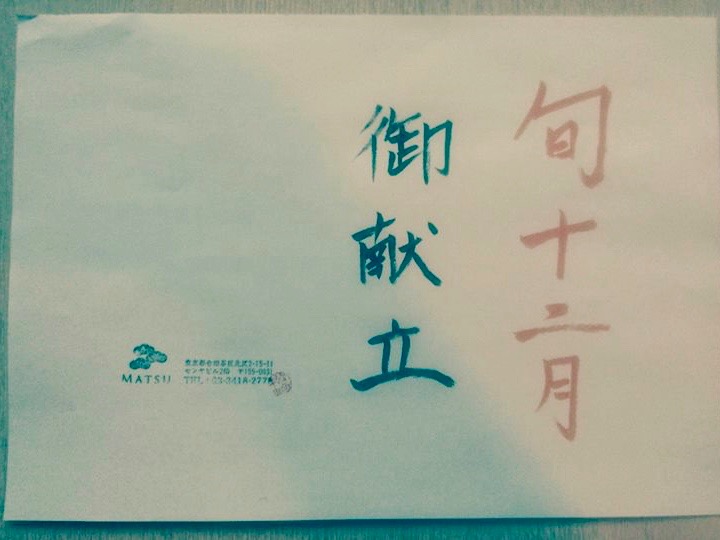 旬十二月
御献立
MATSU
東京都世田谷区北沢2-15-11
センヤビル2階 〒155-0031
TEL:03-3418-277